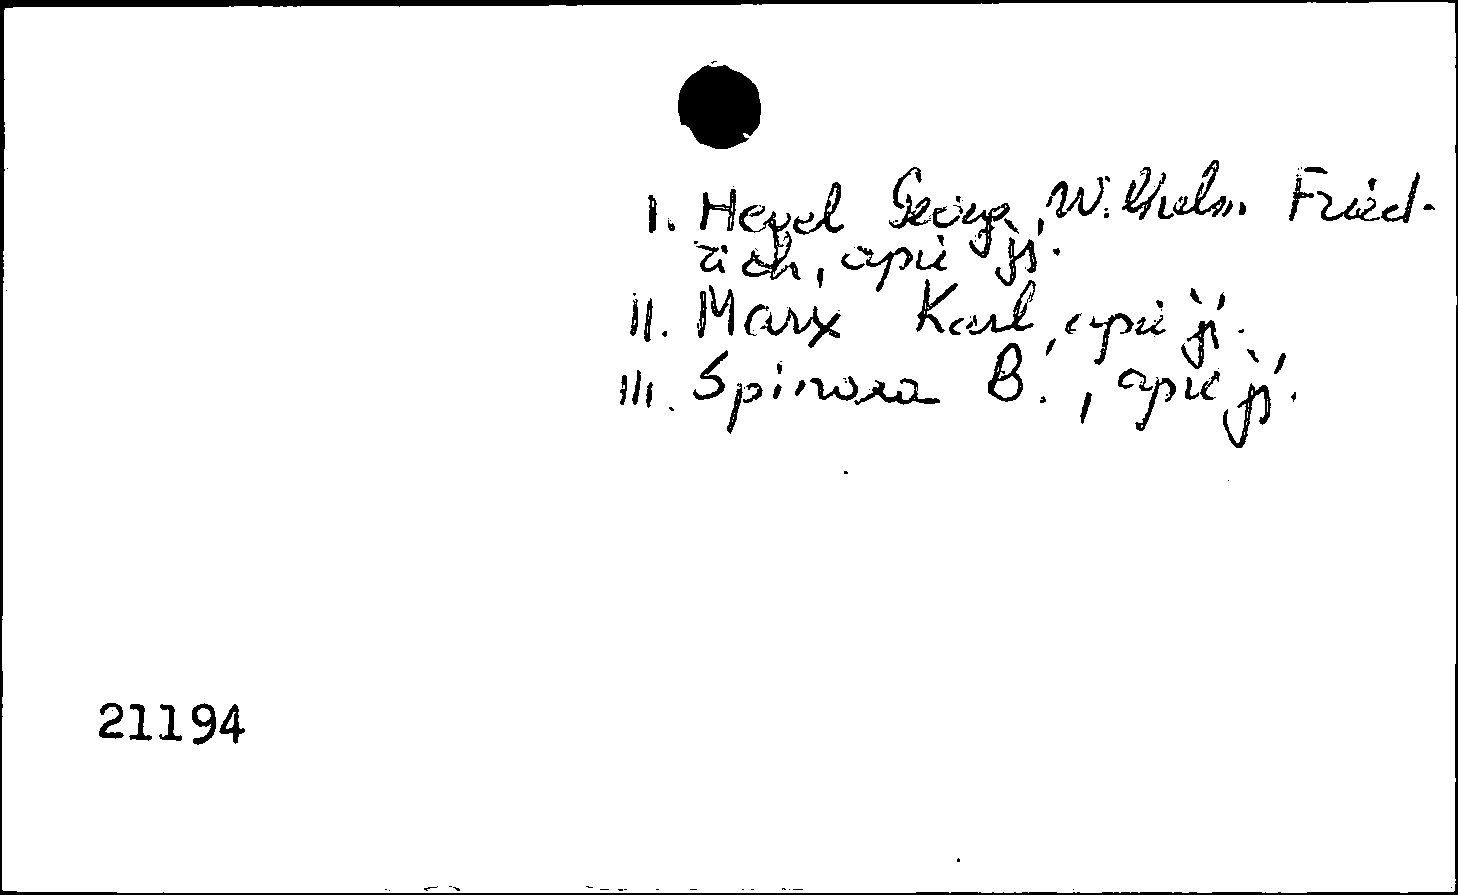 I. Hegel Georg Wilhelm Fried-
rich, apie jį.
II. Marx Karl, apie jį.
III. Spinoza B., apie jį.
21194